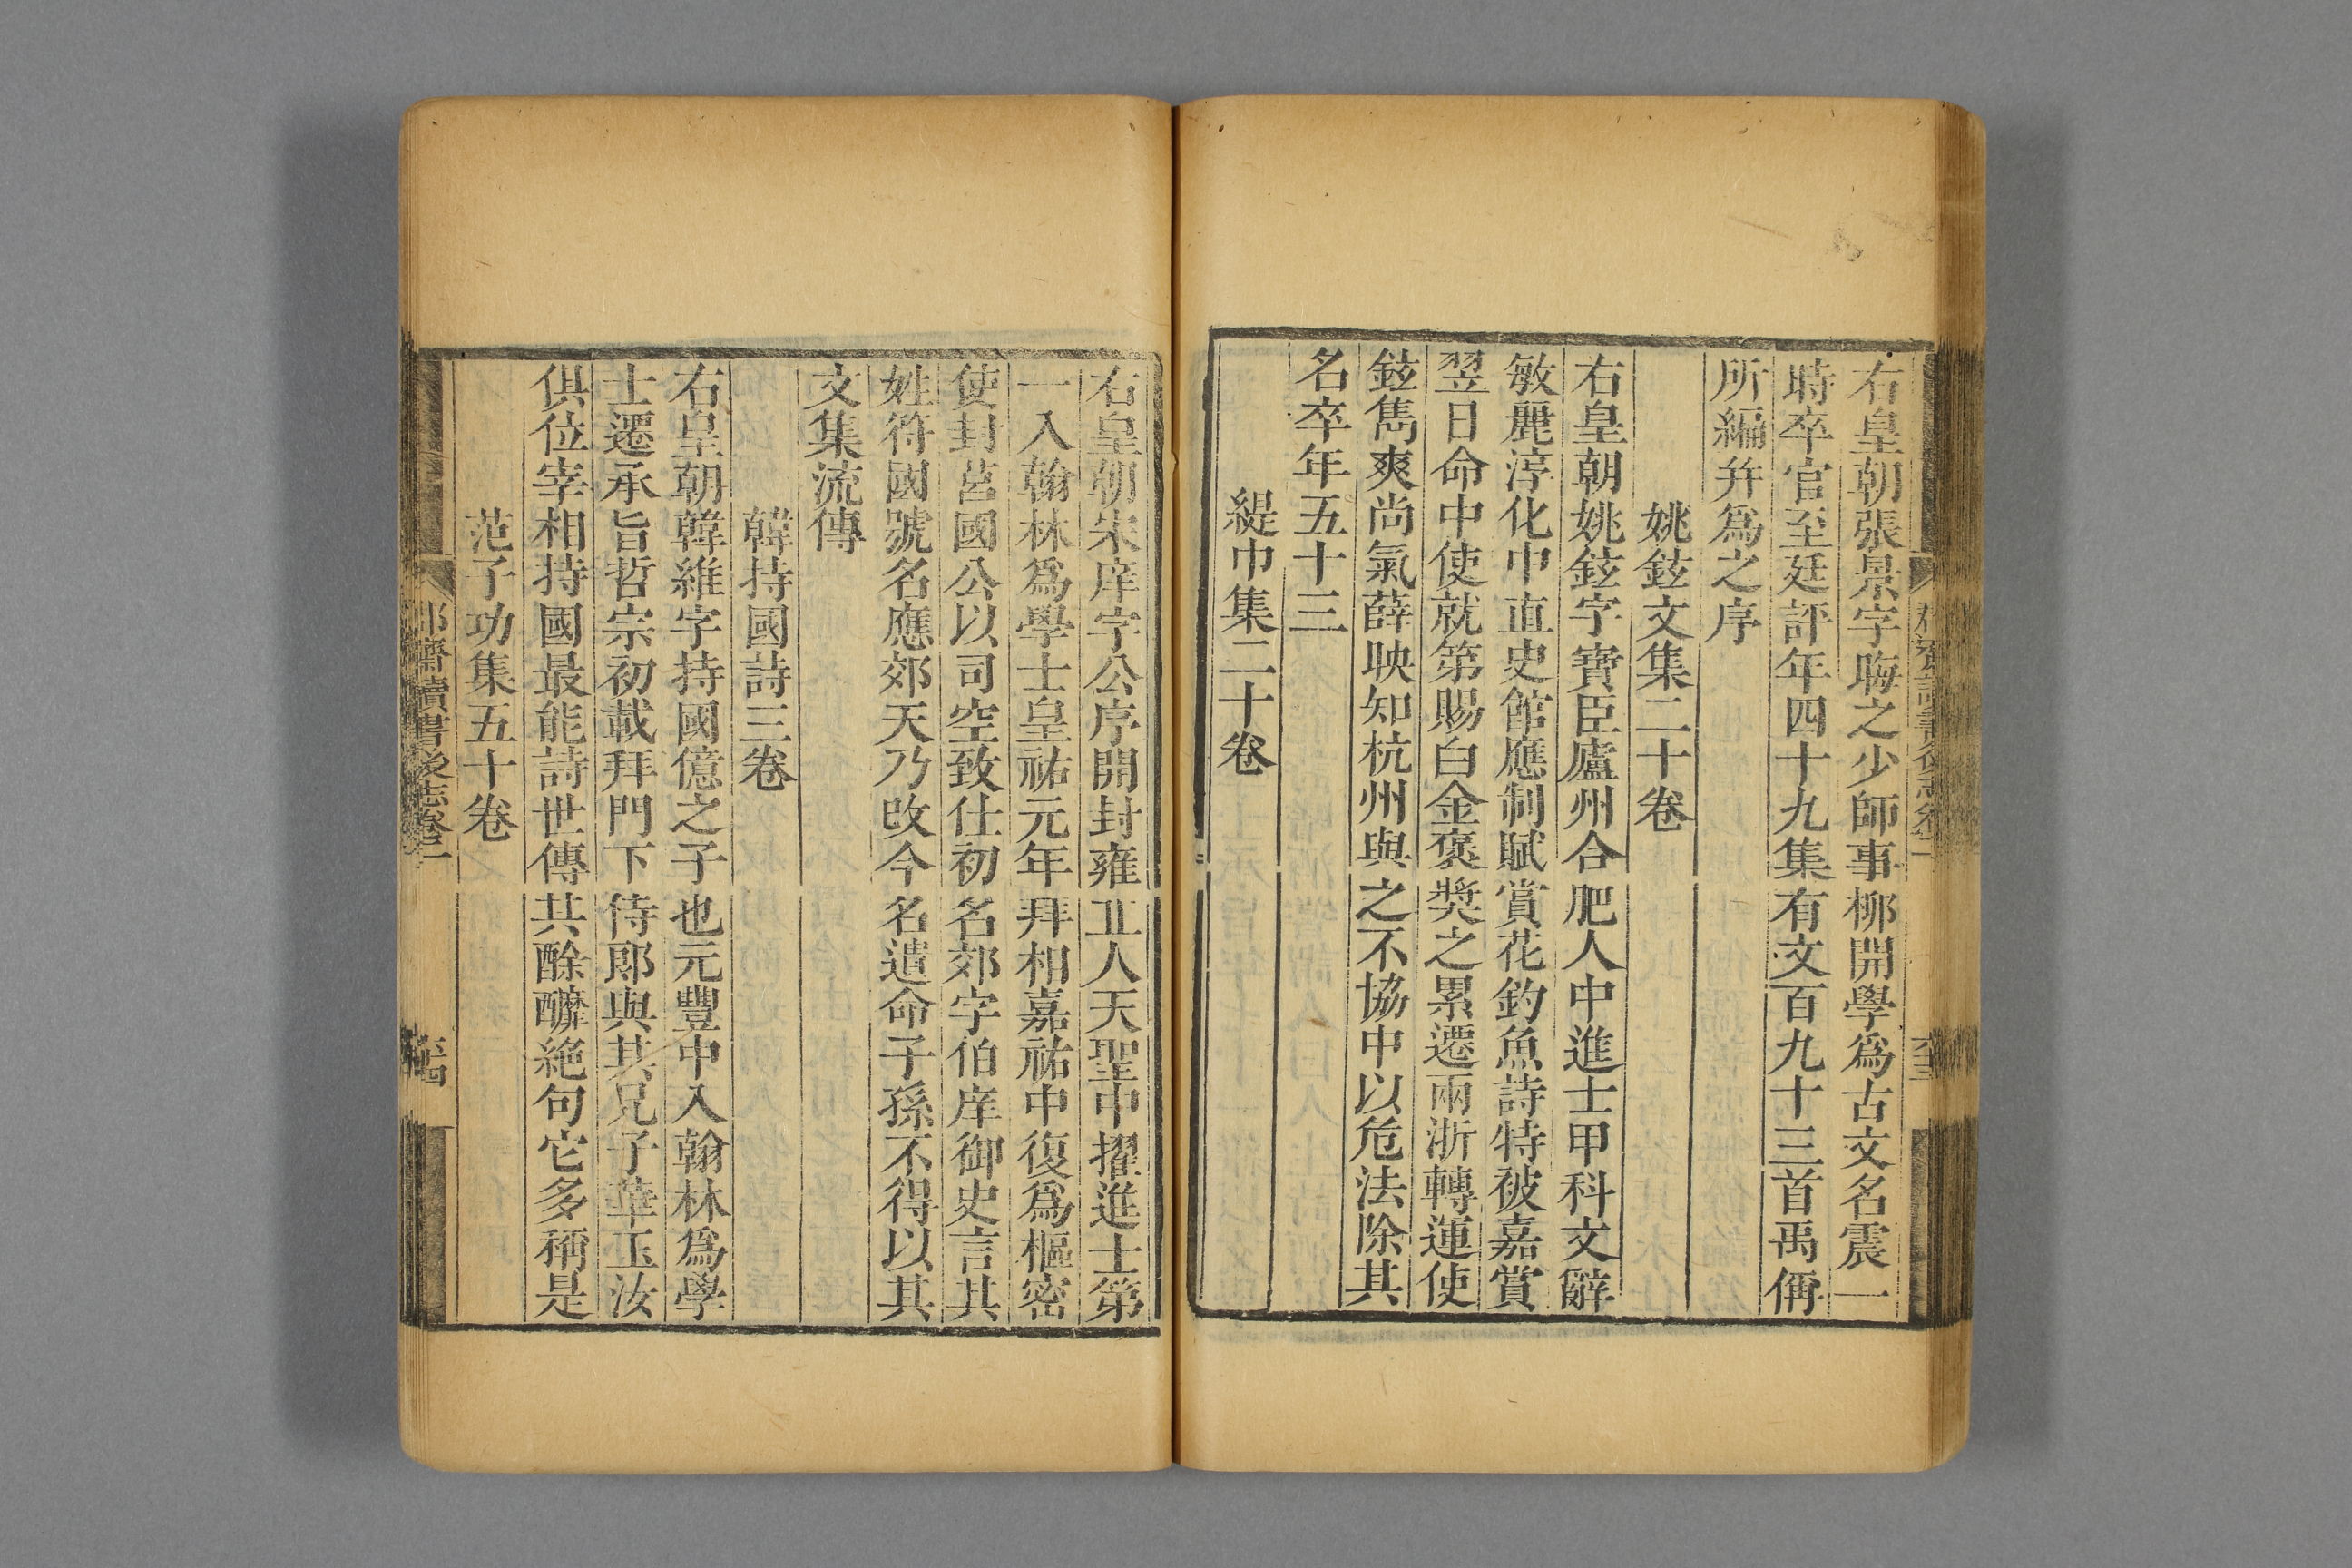 右皇朝張景字晦之少師事栁開學爲古文名震一
時卒官至廷評年四十九集有文百九十三首禹偁
所編幷爲之序
姚鉉文集二十卷
右皇朝姚鉉字寶臣廬州合肥人中進士甲科文辭
敏麗淳化中直史館應制賦賞花釣魚詩特被嘉賞
翌日命中使就第賜白金褒奬之累遷兩浙轉運使
鉉雋爽尚氣薛映知杭州與之不協中以危法除其
名卒年五十三
緹巾集二十卷
右皇朝宋庠字公序開封雍丘人天聖中擢進士第
一入翰林爲學士皇祐元年拜相嘉祐中復爲樞密
使封莒國公以司空致仕初名郊字伯庠御史言其
姓符國號名應郊天乃改今名遣命子孫不得以其
文集流傳
韓持國詩三卷
右皇朝韓維字持國億之子也元豐中入翰林爲學
士遷承旨哲宗初載拜門下侍郎與其兄子華玉汝
俱位宰相持國最能詩世傳其酴醿絶句它多稱是
范子功集五十卷
郡齋讀書後志卷二